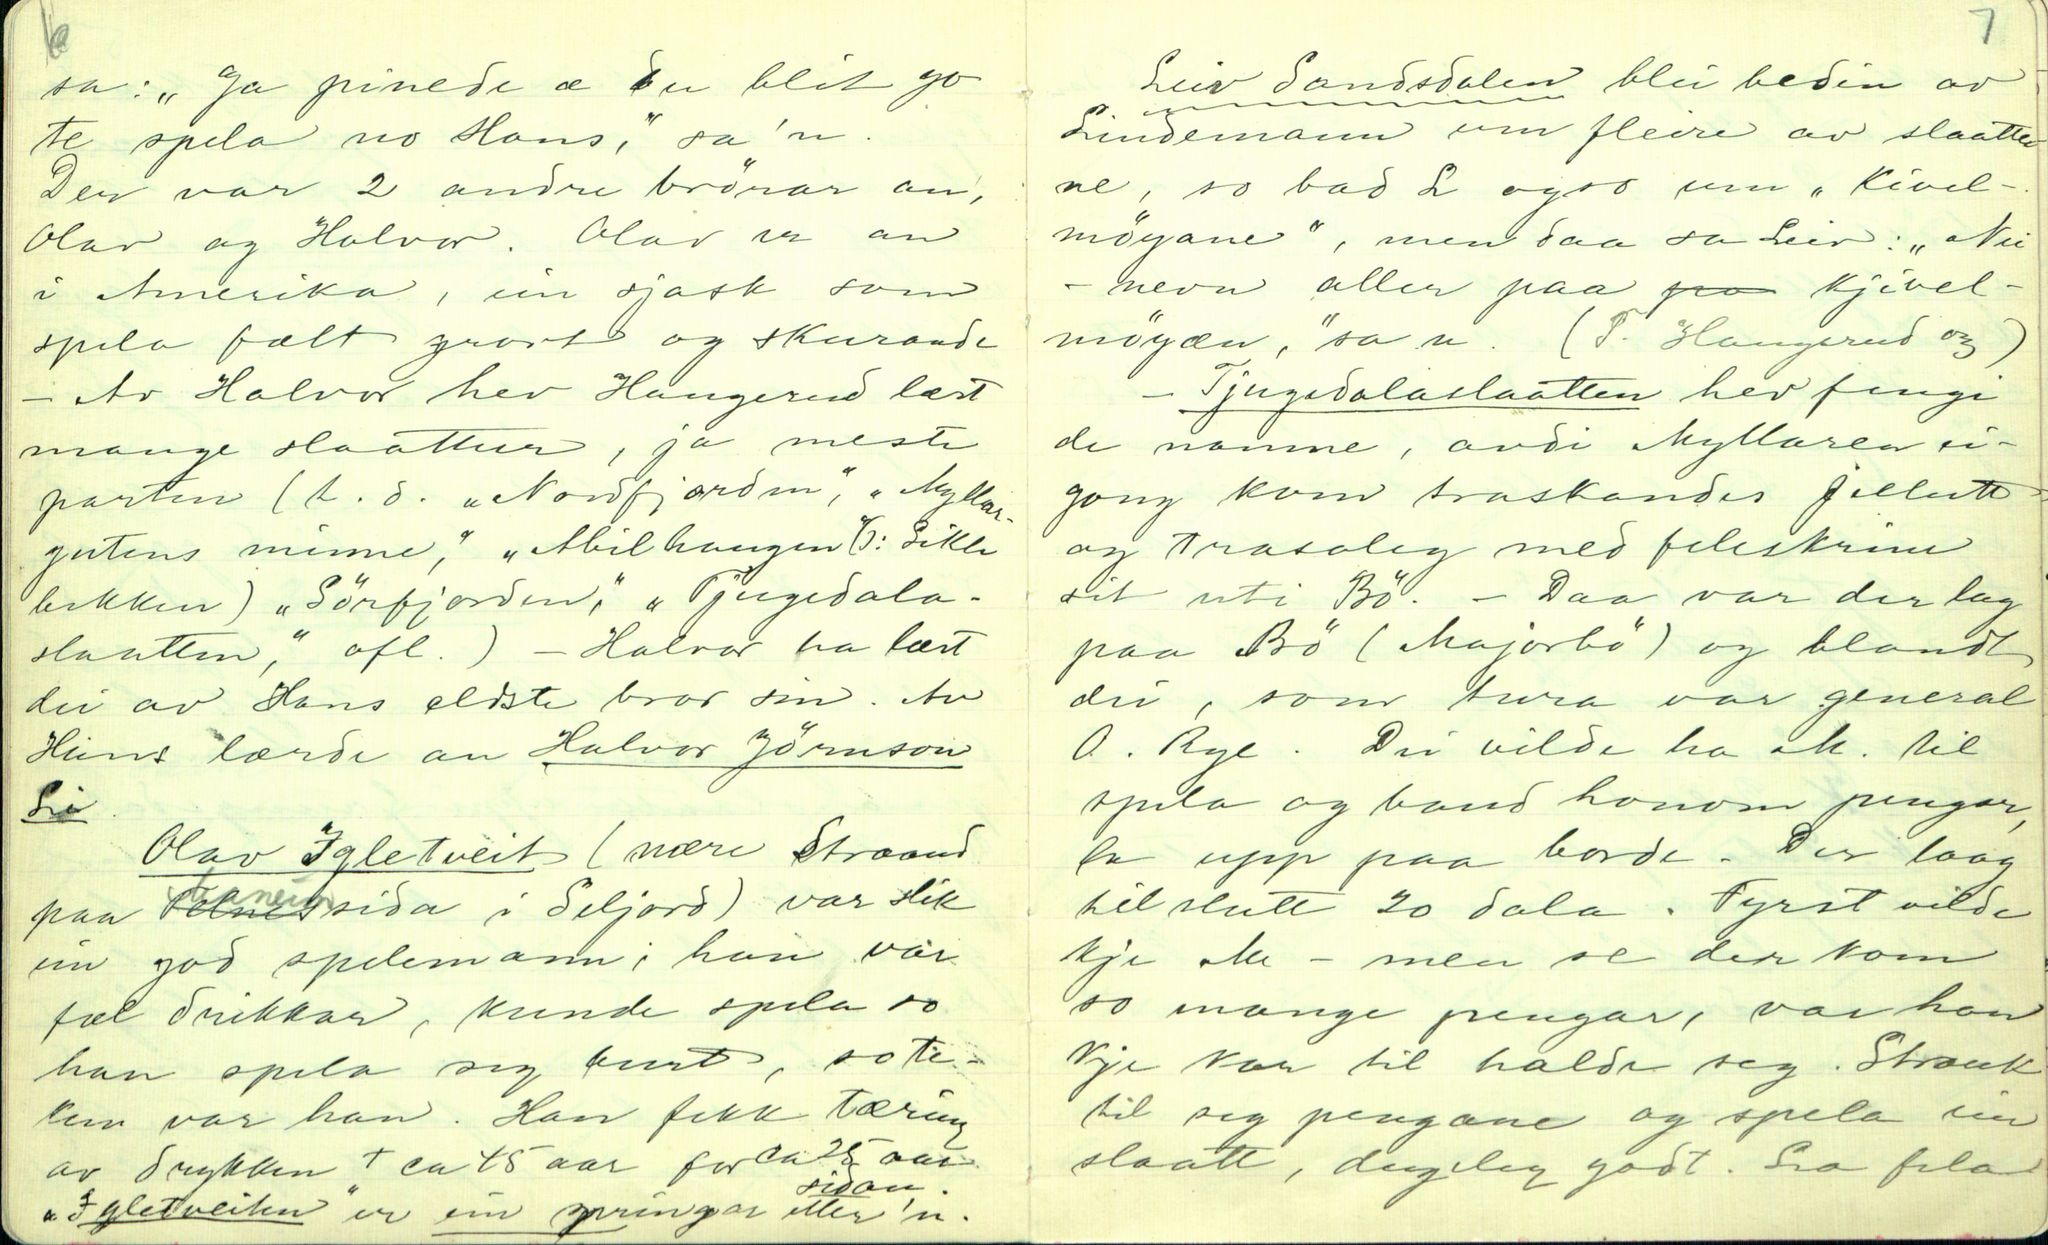 6
sa: „Ja pinede æ du blit go
te spela no Hans," sa'n.
Der var 2 andre brörar an,
Olav og Halvor. Olav er an
i Amerika, ein sjask som
spela fælt grovt og skurande
– Av Halvor hev Haugerud lært
mange slaattur, ja meste
parten (t. d. „Nordfjorden", „Myllar-
gutens minne," „Abilhaugen (ɔ: Sikle
bekken) „Sörfjorden," „Tjugedala-
slaatten," ofl.) – Halvor ha lært
dei av Hans eldste bror sin. Av
Hans lærde an Halvor Jörnson
Li.
Olav Igletveit (nære Straand
paa sida i Seljord) var slik
ein god spelemann; han var
fæl drikkar, kunde spela so
han spela seg burt, so te-
ken var han. Han fekk tæring
av drykken † ca 45 aar for ca 25 aar
sidan.
„Igletveiten" er ein springar etter 'n.
7
Leiv Sandsdalen blei beden av
Lindemann um fleire av slaatte
ne, so bad L ogso um „Kivel-
möyane", men daa sa Leiv: „Nei
– nevn aller paa pa Kjivel-
möyæn," sa n. (T. Haugerud og)
– Tjugedalaslaatten hev fengi
de namne, avdi Myllaren ei-
gong kom traskandes fillutt
og trasaleg med feleskrine
sit uti Bö. – Daa var der lag
paa Bö (Majorbö) og blandt
dei, som tura var general
O. Rye. Dei vilde ha M. til
spela og baud honom pengar,
la upp paa borde. Der laag
til slutt 20 dala. Fyrst vilde
kje M – men se der kom
so mange pengar, var han
kje kar til halde seg. Strauk
til seg pengane og spela ein
slaatt, dugeleg godt. La fela